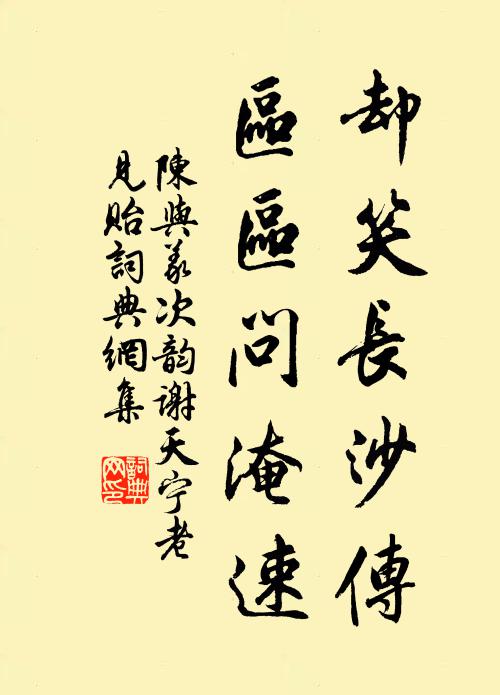 却笑長沙傅
區區問淹速
陳與義次韵謝天宁老
見貽詞典網集
詞典网印